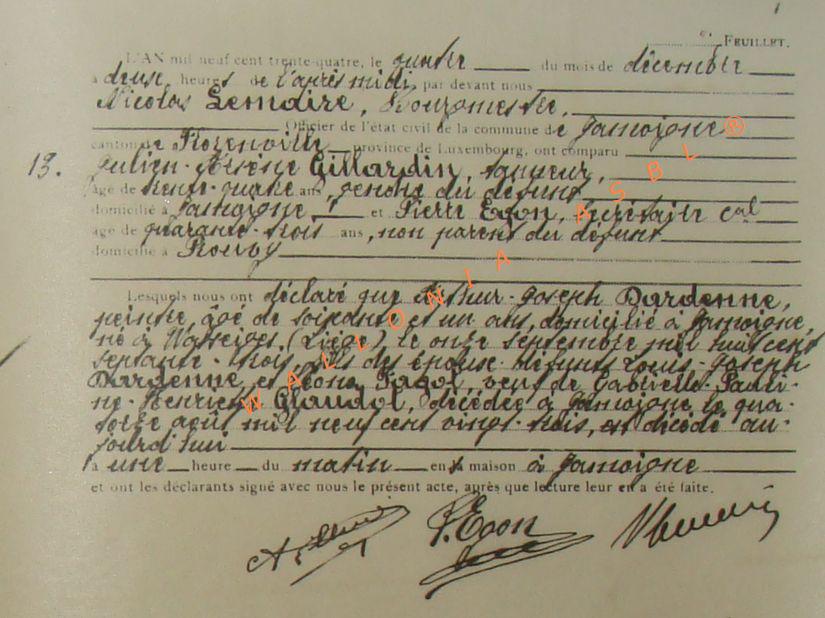 FEUILLET.
L'AN mil neuf cent trente-quatre, le quatre du mois de décembre
à deux heures de l'après midi, par devant nous
Nicolas Lemaire, Bourgmestre,
Officier de l'état civil de la commune de Jamoigne
canton de Florenville province de Luxembourg, ont comparu
13. Julien-Arsène Gillardin, tanneur,
âgé de trente-quatre ans, gendre du défunt
domicilié à Jamoigne et Pierre Egon, secrétaire cal
âgé de quarante-trois ans, non parent du défunt
domicilié à
Lesquels nous ont déclaré que Arthur-Joseph Dardenne,
peintre, âgé de soixante et un ans, domicilié à Jamoigne,
né à Wasseiges (Liège), le onze septembre mil huit cent
septante-trois, fils des époux défunts Louis-Joseph
Dardenne et Pagot, veuf de Gabrielle-Pauli-
ne-Henriette Glaudot, décédée à Jamoigne le qua-
torze août mil neuf cent vingt-trois, est décédé au-
jourd'hui
à une heure du matin en sa maison à Jamoigne
et ont les déclarants signé avec nous le présent acte, après que lecture leur en a été faite.
P. Egon
WALLONIA ASBL®